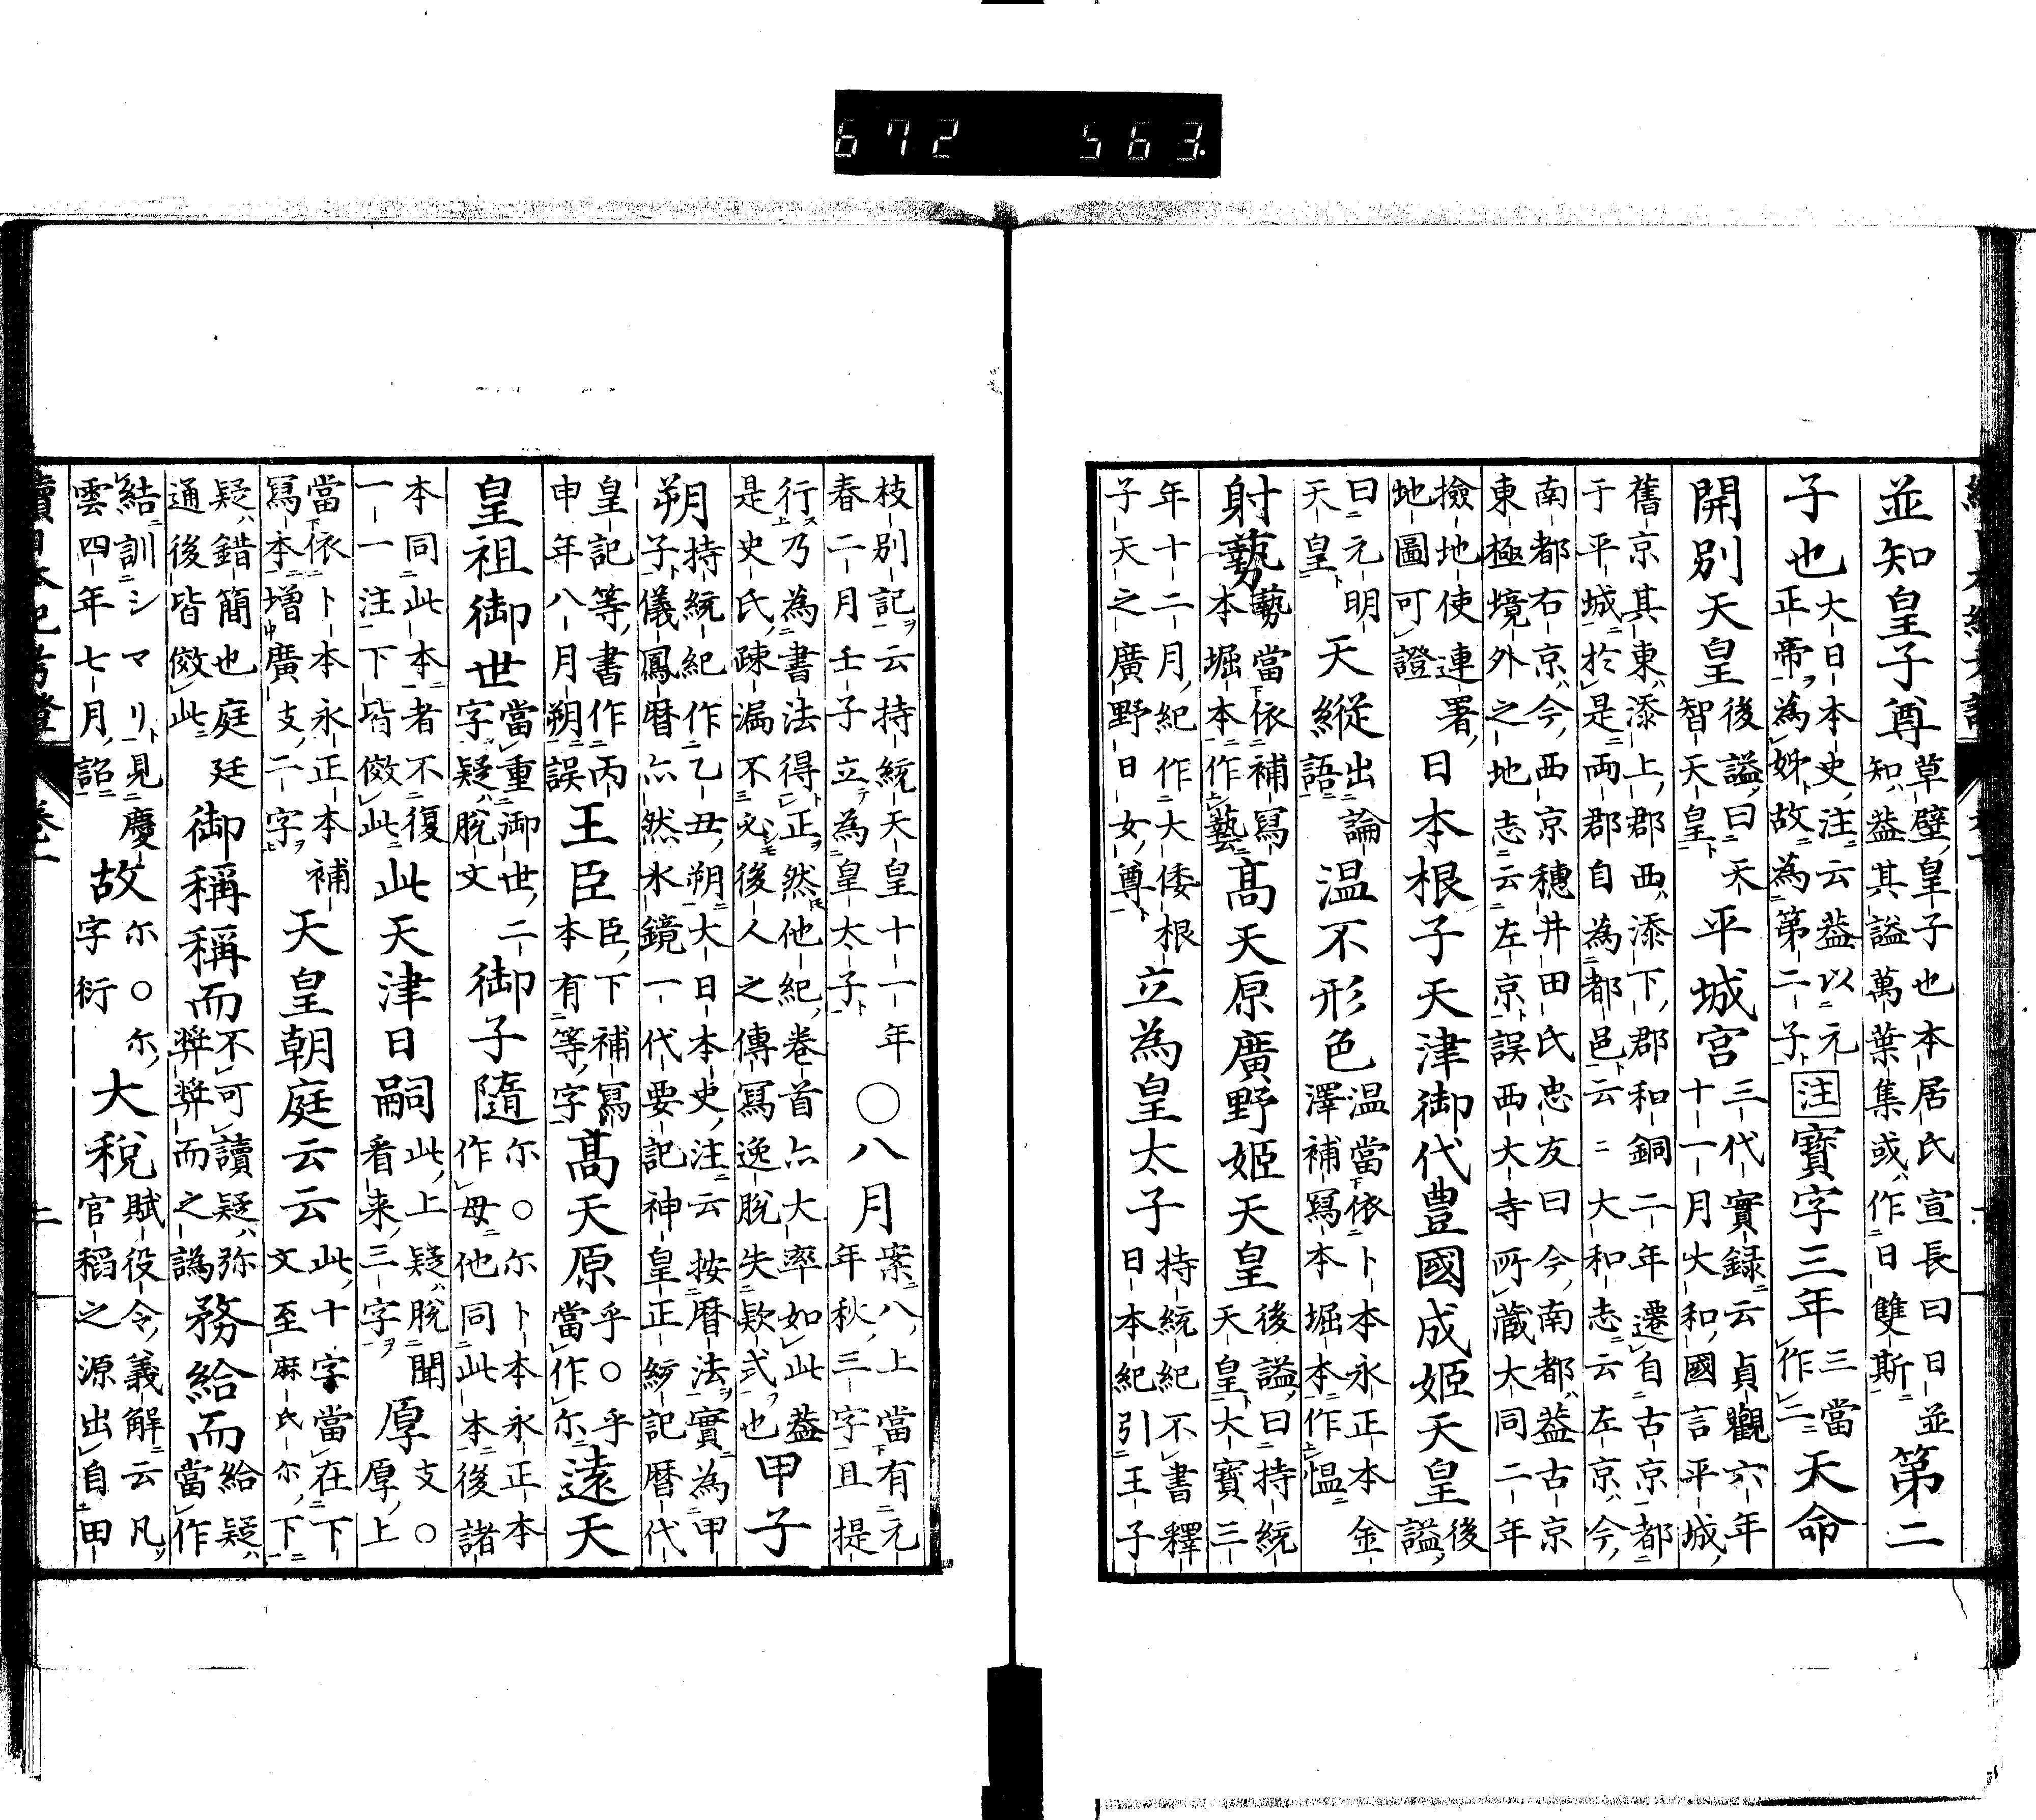 672 563
並知皇子尊草壁皇子也本居氏宣長曰日並
知ハ蓋其謚萬葉集或ハ作日雙斯第二
子也大日本史注云蓋以元
正帝為姊故為第二子注寶字三年三當
作二天命
開別天皇後謚曰天
智天皇平城宮三代實録云貞觀六年
十一月大和國言平城
舊京其東ハ添上郡西ハ添下郡和銅二年遷自古京都
于平城於是兩郡自為都邑云云大和志云左京ハ今
南都右京ハ今西京穗井田氏忠友曰今南都ハ蓋古京
東極境外之地志云左京誤西大寺所藏大同二年
撿地使連署
地圖可證日本根子天津御代豊國成姬天皇後
謚
曰元明
天皇天縱出論
語温不形色温當依卜本永正本金
澤補寫本堀本作愠
射藝藝當依補寫
本堀本作藝髙天原廣野姬天皇後謚曰持統
天皇大寶三
年十二月紀作大倭根
子天之廣野日女尊立為皇太子持統紀不書釋
日本紀引王子
枝別記云持統天皇十一年
春二月壬子立為皇太子〇八月案八上當有元
年秋三字且提
行乃為書法得正然他紀卷首亦大率如此蓋
是史氏疎漏不必後人之傳寫逸脫失欵式也甲子
朔持統紀作乙丑朔大日本史注云按曆法實為甲
子儀鳳曆亦然水鏡一代要記神皇正統記曆代
皇記等書作丙
申年八月朔誤王臣臣下補寫
本有等字髙天原乎〇乎
當作尓遠天
皇祖御世當重御世二
字疑ハ脫文御子隨尓〇尓卜本永正本
作母他同此本後諸
本同此本者不復
一一注下皆傚此此天津日嗣此上疑ハ脫聞
看来三字厚支〇
厚上
當依卜本永正本補
寫本增廣支二字天皇朝庭云云此十字當在下
文至麻氐尓下
疑ハ錯簡也庭廷
通後皆傚此御稱稱而不可讀疑ハ弥
弉弉而之譌務給而給疑ハ
當作
結訓シマリ見慶
雲四年七月詔故尓〇尓
字衍大税賦役令義解云凡
官稻之源出自田
續日本紀考證 卷一 二